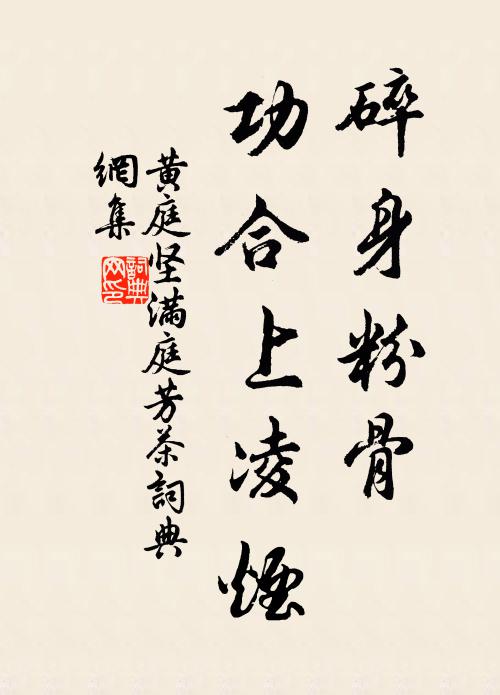 碎身粉骨
功合上凌煙
黄庭坚滿庭芳茶詞典
網集
詞典網印